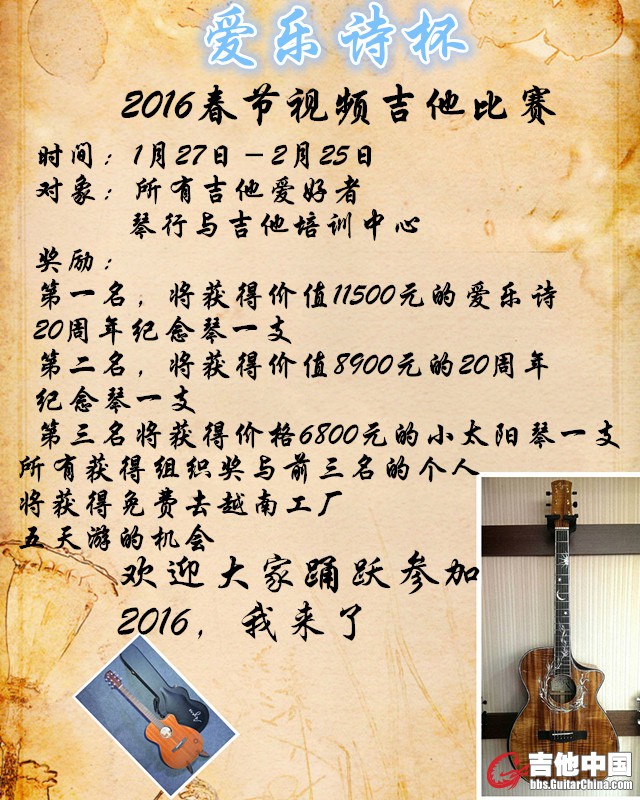 爱乐诗杯
2016春节视频吉他比赛
时间：1月27日－2月25日
对象：所有吉他爱好者
琴行与吉他培训中心
奖励：
第一名，将获得价值11500元的爱乐诗
20周年纪念琴一支
第二名，将获得价值8900元的20周年
纪念琴一支
第三名将获得价格6800元的小太阳琴一支
所有获得组织奖与前三名的个人
将获得免费去越南工厂
五天游的机会
欢迎大家踊跃参加
2016，我来了
吉他中国
bbs.GuitarChina.com